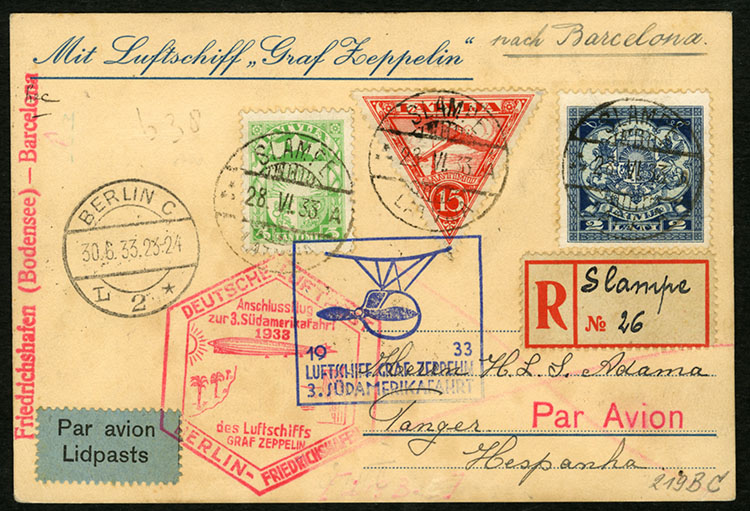 Mit Luftschiff „Graf Zeppelin“
nach Barcelona.
Friedrichshafen (Bodensee) — Barcelona
638
LATVIJA
LATVIJA
15
LATVIJA
2 LATI 2
SLAMPE
28 VI 33 A
SLAMPE
28 VI 33 A
SLAMPE
VI 33
BERLIN C
30.6.33.23-24
L 2 *
DEUTSCHE LUFTPOST
Anschlussflug
zur 3. Südamerikafahrt
1933
des Luftschiffs
GRAF ZEPPELIN
BERLIN-FRIEDRICHSHAFEN
19 33
LUFTSCHIFF GRAF ZEPPELIN
3. SÜDAMERIKAFAHRT
R
Slampe
№ 26
Herrn H.L.S. Adama
Par Avion
Tanger
Hespanha
Par avion
Lidpasts
219BC